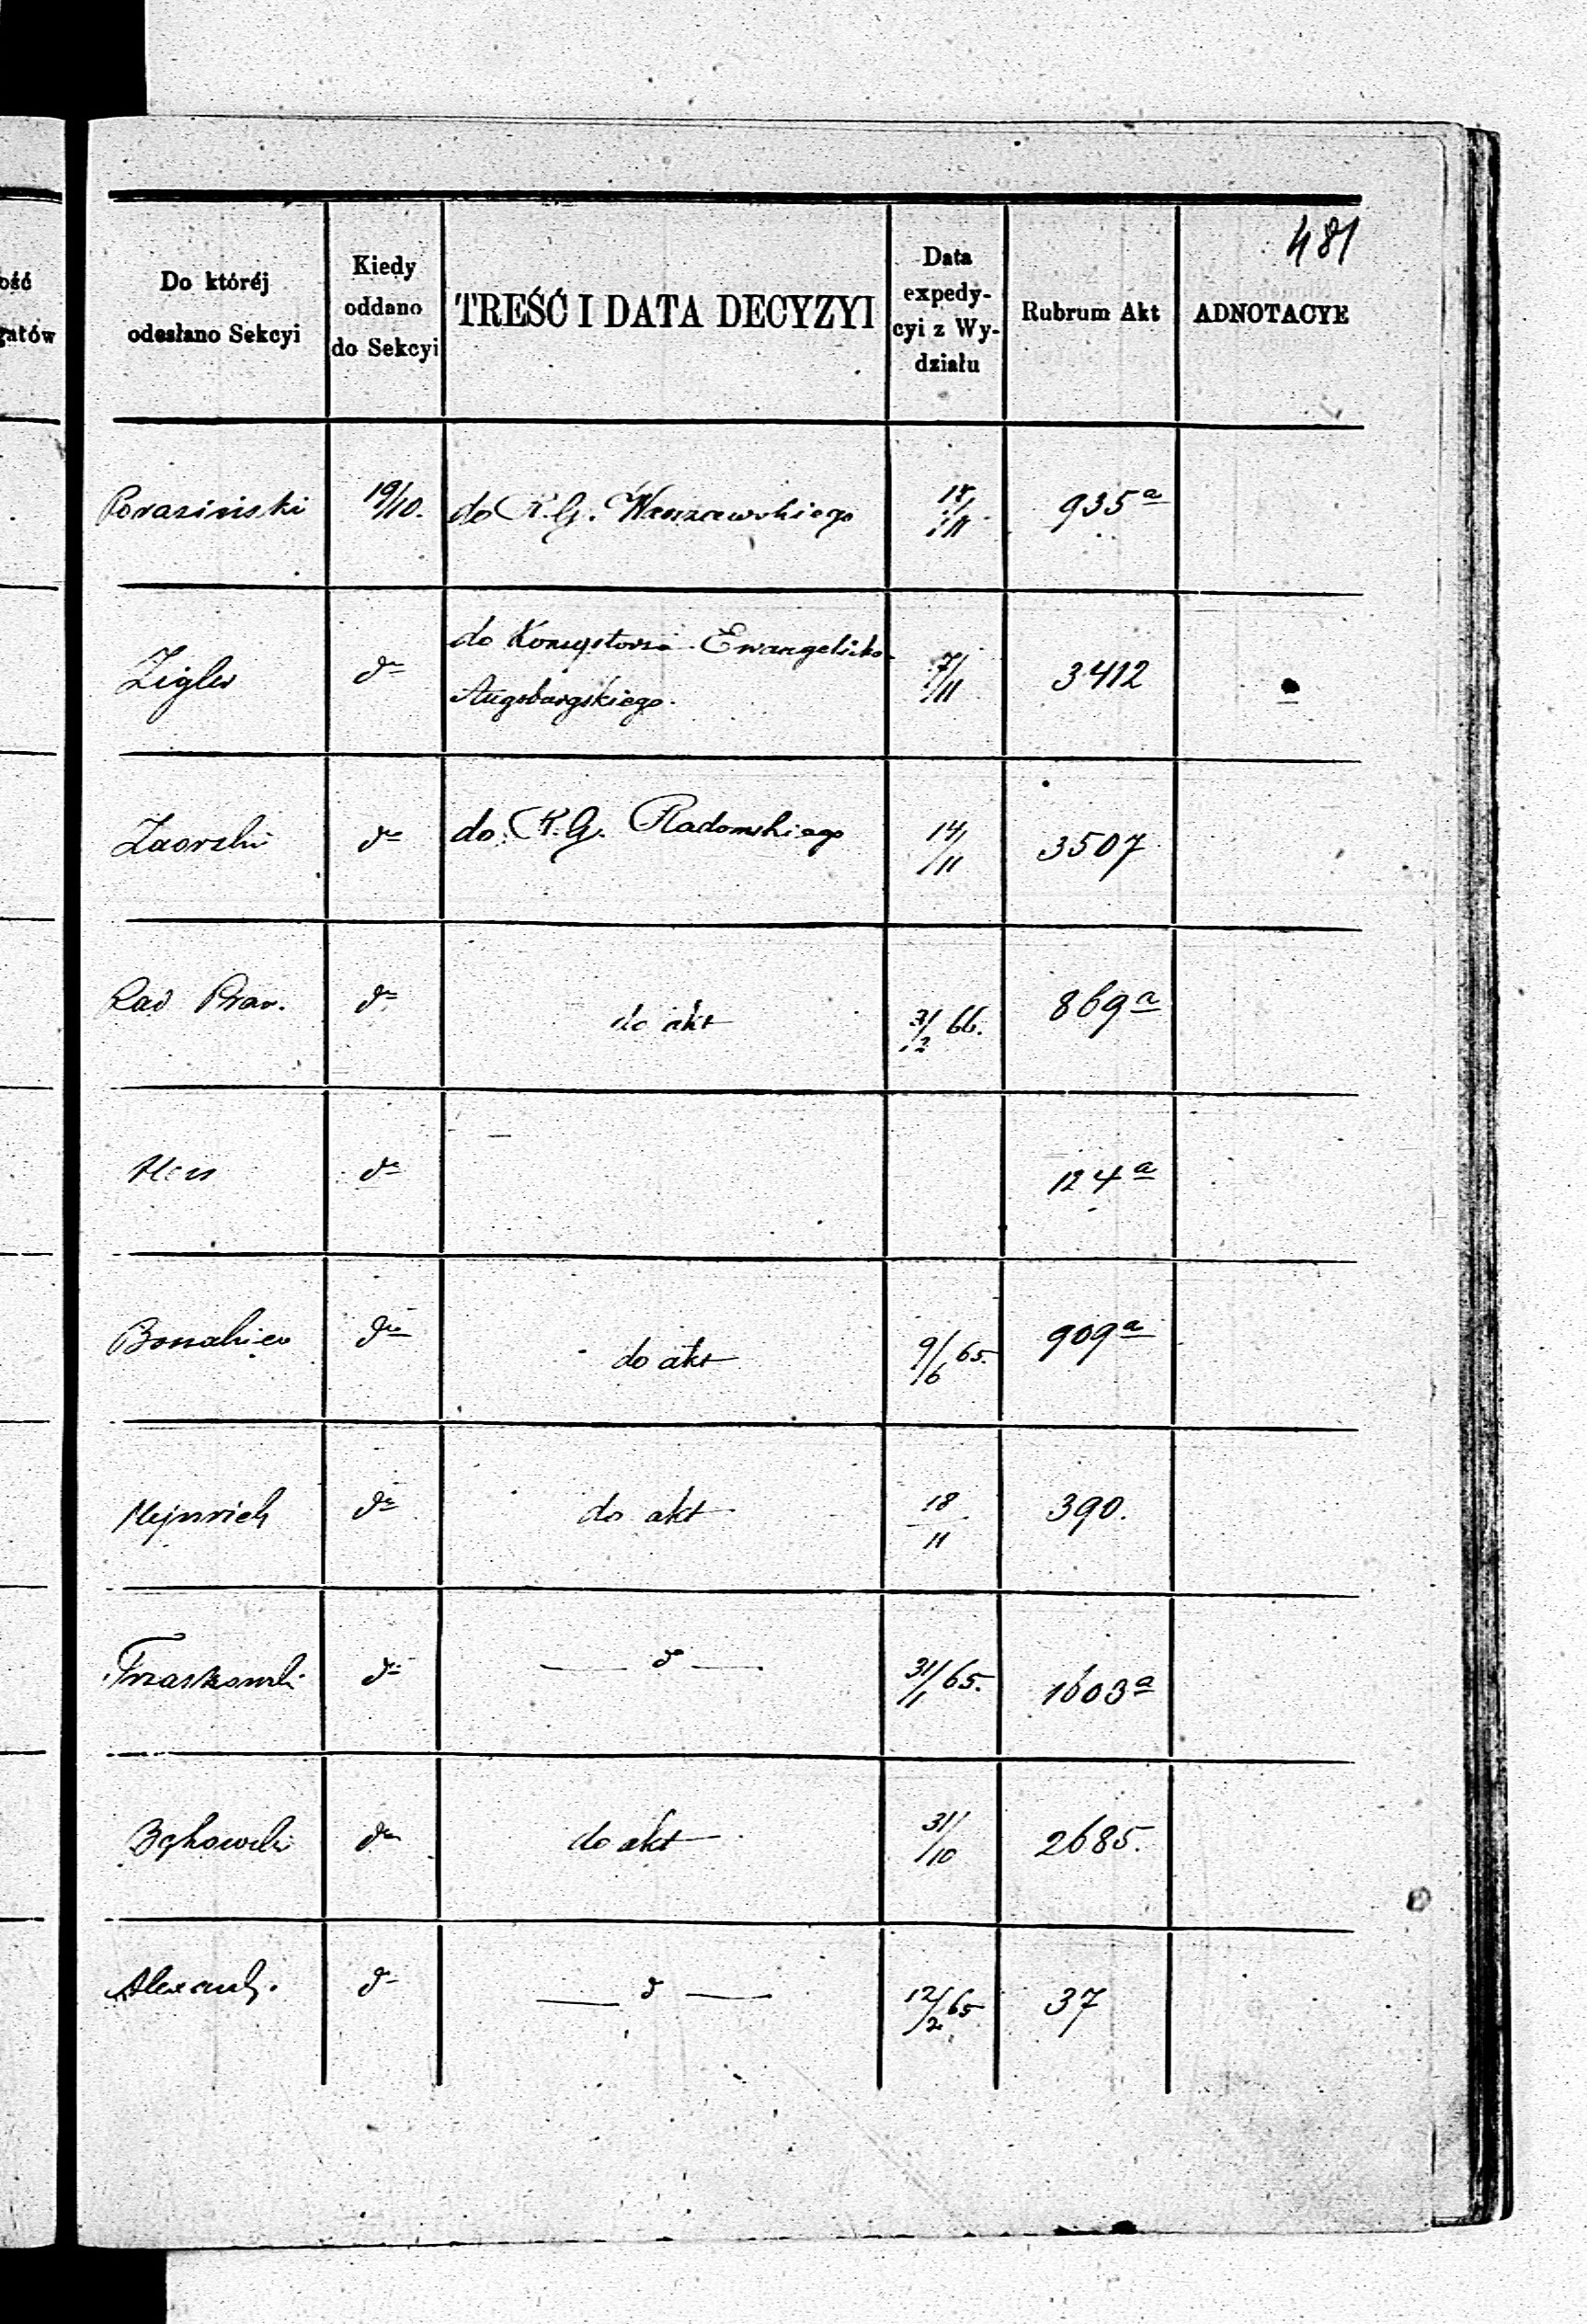 481
ość
gatów
Do któréj
odesłano Sekcyi
Kiedy
oddano
do Sekcyi
TREŚĆ I DATA DECYZYI
Data
expedy-
cyi z Wy-
działu
Rubrum Akt
ADNOTACYE
Porasiński 19/10. do R. G. Warszawskiego 18/11 935a
Zigler do do Konsystorza Ewangelicko
Augsburgskiego. 7/11 3412
Zaorski do do R. G. Radomskiego 14/11 3507
Rad Praw. do do akt 3/2 66. 869a
Hess do 124a
do do akt 9/6 65. 909a
Hejnrich do do akt 18/11 390.
Trzaskowski do — do — 31/1 65. 1603a
Bąkowski do do akt 31/10 2685.
Alexand. do — do — 12/2 65 37